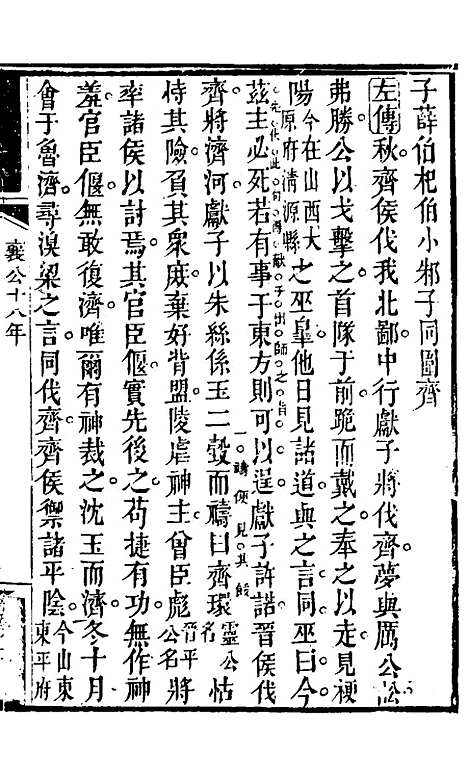 子薛伯杞伯小邾子同圍齊
左傳秋齊侯伐我北鄙中行獻子將伐齊夢與厲公訟
弗勝公以戈擊之首隊于前跪而戴之奉之以走見梗
陽今在山西大原府清源縣之巫臯他日見諸道與之言同巫曰今
茲主必死若有事于東方則可以逞獻子許諾晉侯伐
齊將濟河獻子以朱絲係玉二瑴而禱曰齊環靈公名怙
恃其險負其衆庻棄好背盟陵虐神主曾臣彪晉平公名將
率諸侯以討焉其官臣偃實先後之苟捷有功無作神
羞官臣偃無敢復濟唯爾有神裁之沈玉而濟冬十月
會于魯濟尋湨梁之言同伐齊齊侯禦諸平隂今山東東平府
襄公十八年